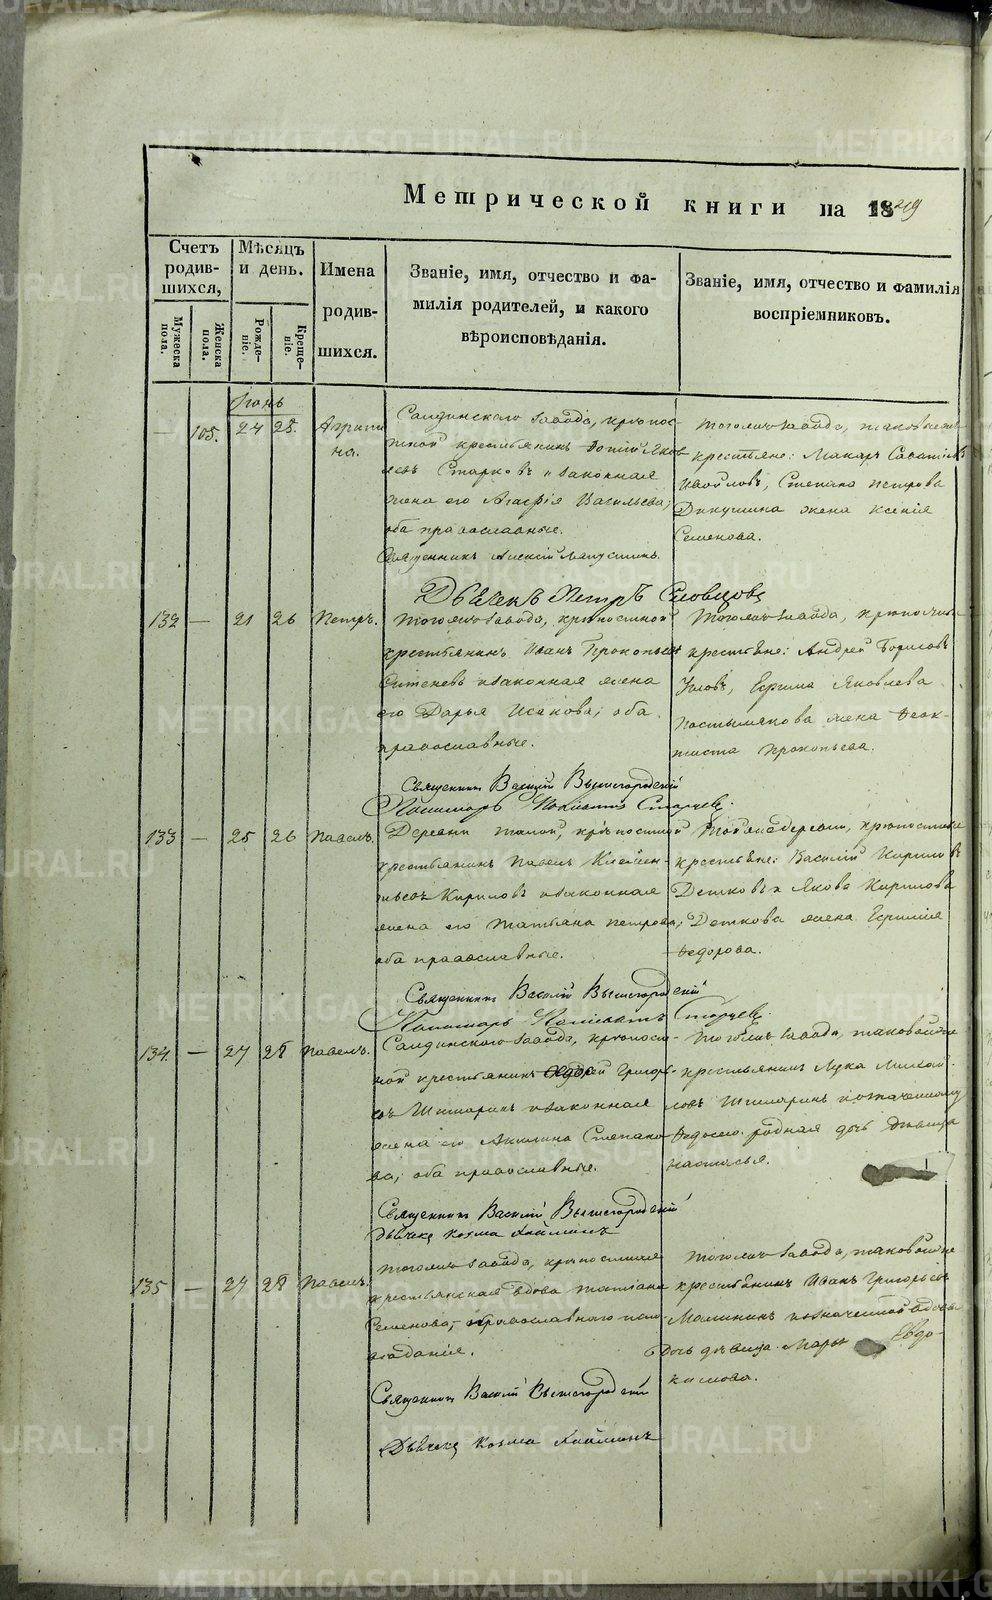 Метрической книги на 1849
Счетъ родив-шихся,
Мужеска пола.
Женска пола.
Мѣсяцъ и день.
Рожде-ніе.
Креще-ніе.
Имена родив-шихся.
Званіе, имя, отчество и фа-
милія родителей, и какого
вѣроисповѣданія.
Званіе, имя, отчество и фамилія
воспріемниковъ.
Іюнь
— 105. 24 25. Агрипи
на.
Салдинскаго завода, крѣпос-
тной крестьянинъ Яков
левъ Старковъ и законная
жена его Агафія Васильева;
оба православные.
Священникъ Алексій
Дьячекъ Петръ Словцовъ
Тогоже завода, таковыеже
крестьяне: Макаръ Саватіевъ
Степана Петрова
жена Ксенія
Семенова.
132 — 21 26 Петръ.
Тогоже завода, крѣпостной
крестьянинъ Иванъ Прокопьевъ
и законная жена
его Дарья Исакова; оба
православные.
Священникъ Василій Вышегородскій
Пономарь Старцевъ.
Тогоже завода, крѣпостные
крестьяне: Андрей Борисовъ
Ефима Яковлева
Постылякова жена Феок-
тиста Прокопьева.
133 — 25 26 Павелъ.
Деревни крѣпостной
крестьянинъ Павелъ Климен-
тьевъ Кириловъ и законная
жена его Татьяна Петрова;
оба православные.
Священникъ Василій Вышегородскій
Пономарь Старцевъ.
Тойже деревни, крѣпостные
крестьяне: Василій Кириловъ
Детковъ и Якова Кирилова
Деткова жена Ефимія
Федорова.
134. — 27 28 Павелъ.
Салдинскаго завода, крѣпост-
ной крестьянинъ Григорь-
евъ Шипаринъ и законная
жена его Акилина Степано-
ва; оба православные.
Священникъ Василій Вышегородскій
Дьячекъ Козма
Тогоже завода, таковойже
крестьянинъ Лука Михай-
ловъ Шипаринъ и означенному
родная дочь дѣвица
Настасья.
135 — 27 28 Павелъ.
Тогоже завода, крѣпостная
крестьянская вдова Татіана
Семенова; православнаго испо-
вѣданія.
Священникъ Василій Вышегородскій
Дьячекъ Козма
Тогоже завода, таковойже
крестьянинъ Иванъ Григорьевъ
Малининъ и означенной вдовы
дочь дѣвица Марья Евдо-
кимова.
METRIKI.GASO-URAL.RU